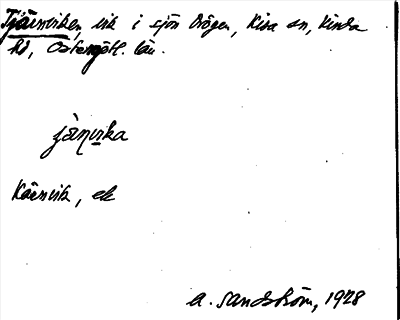 Tjärnviken, vik i sjön Drögen, Kisa sn, Kinda
hd, Östergötl. län.
jä̀ṇvika
Kärnvik, ek
A. Sandström, 1928